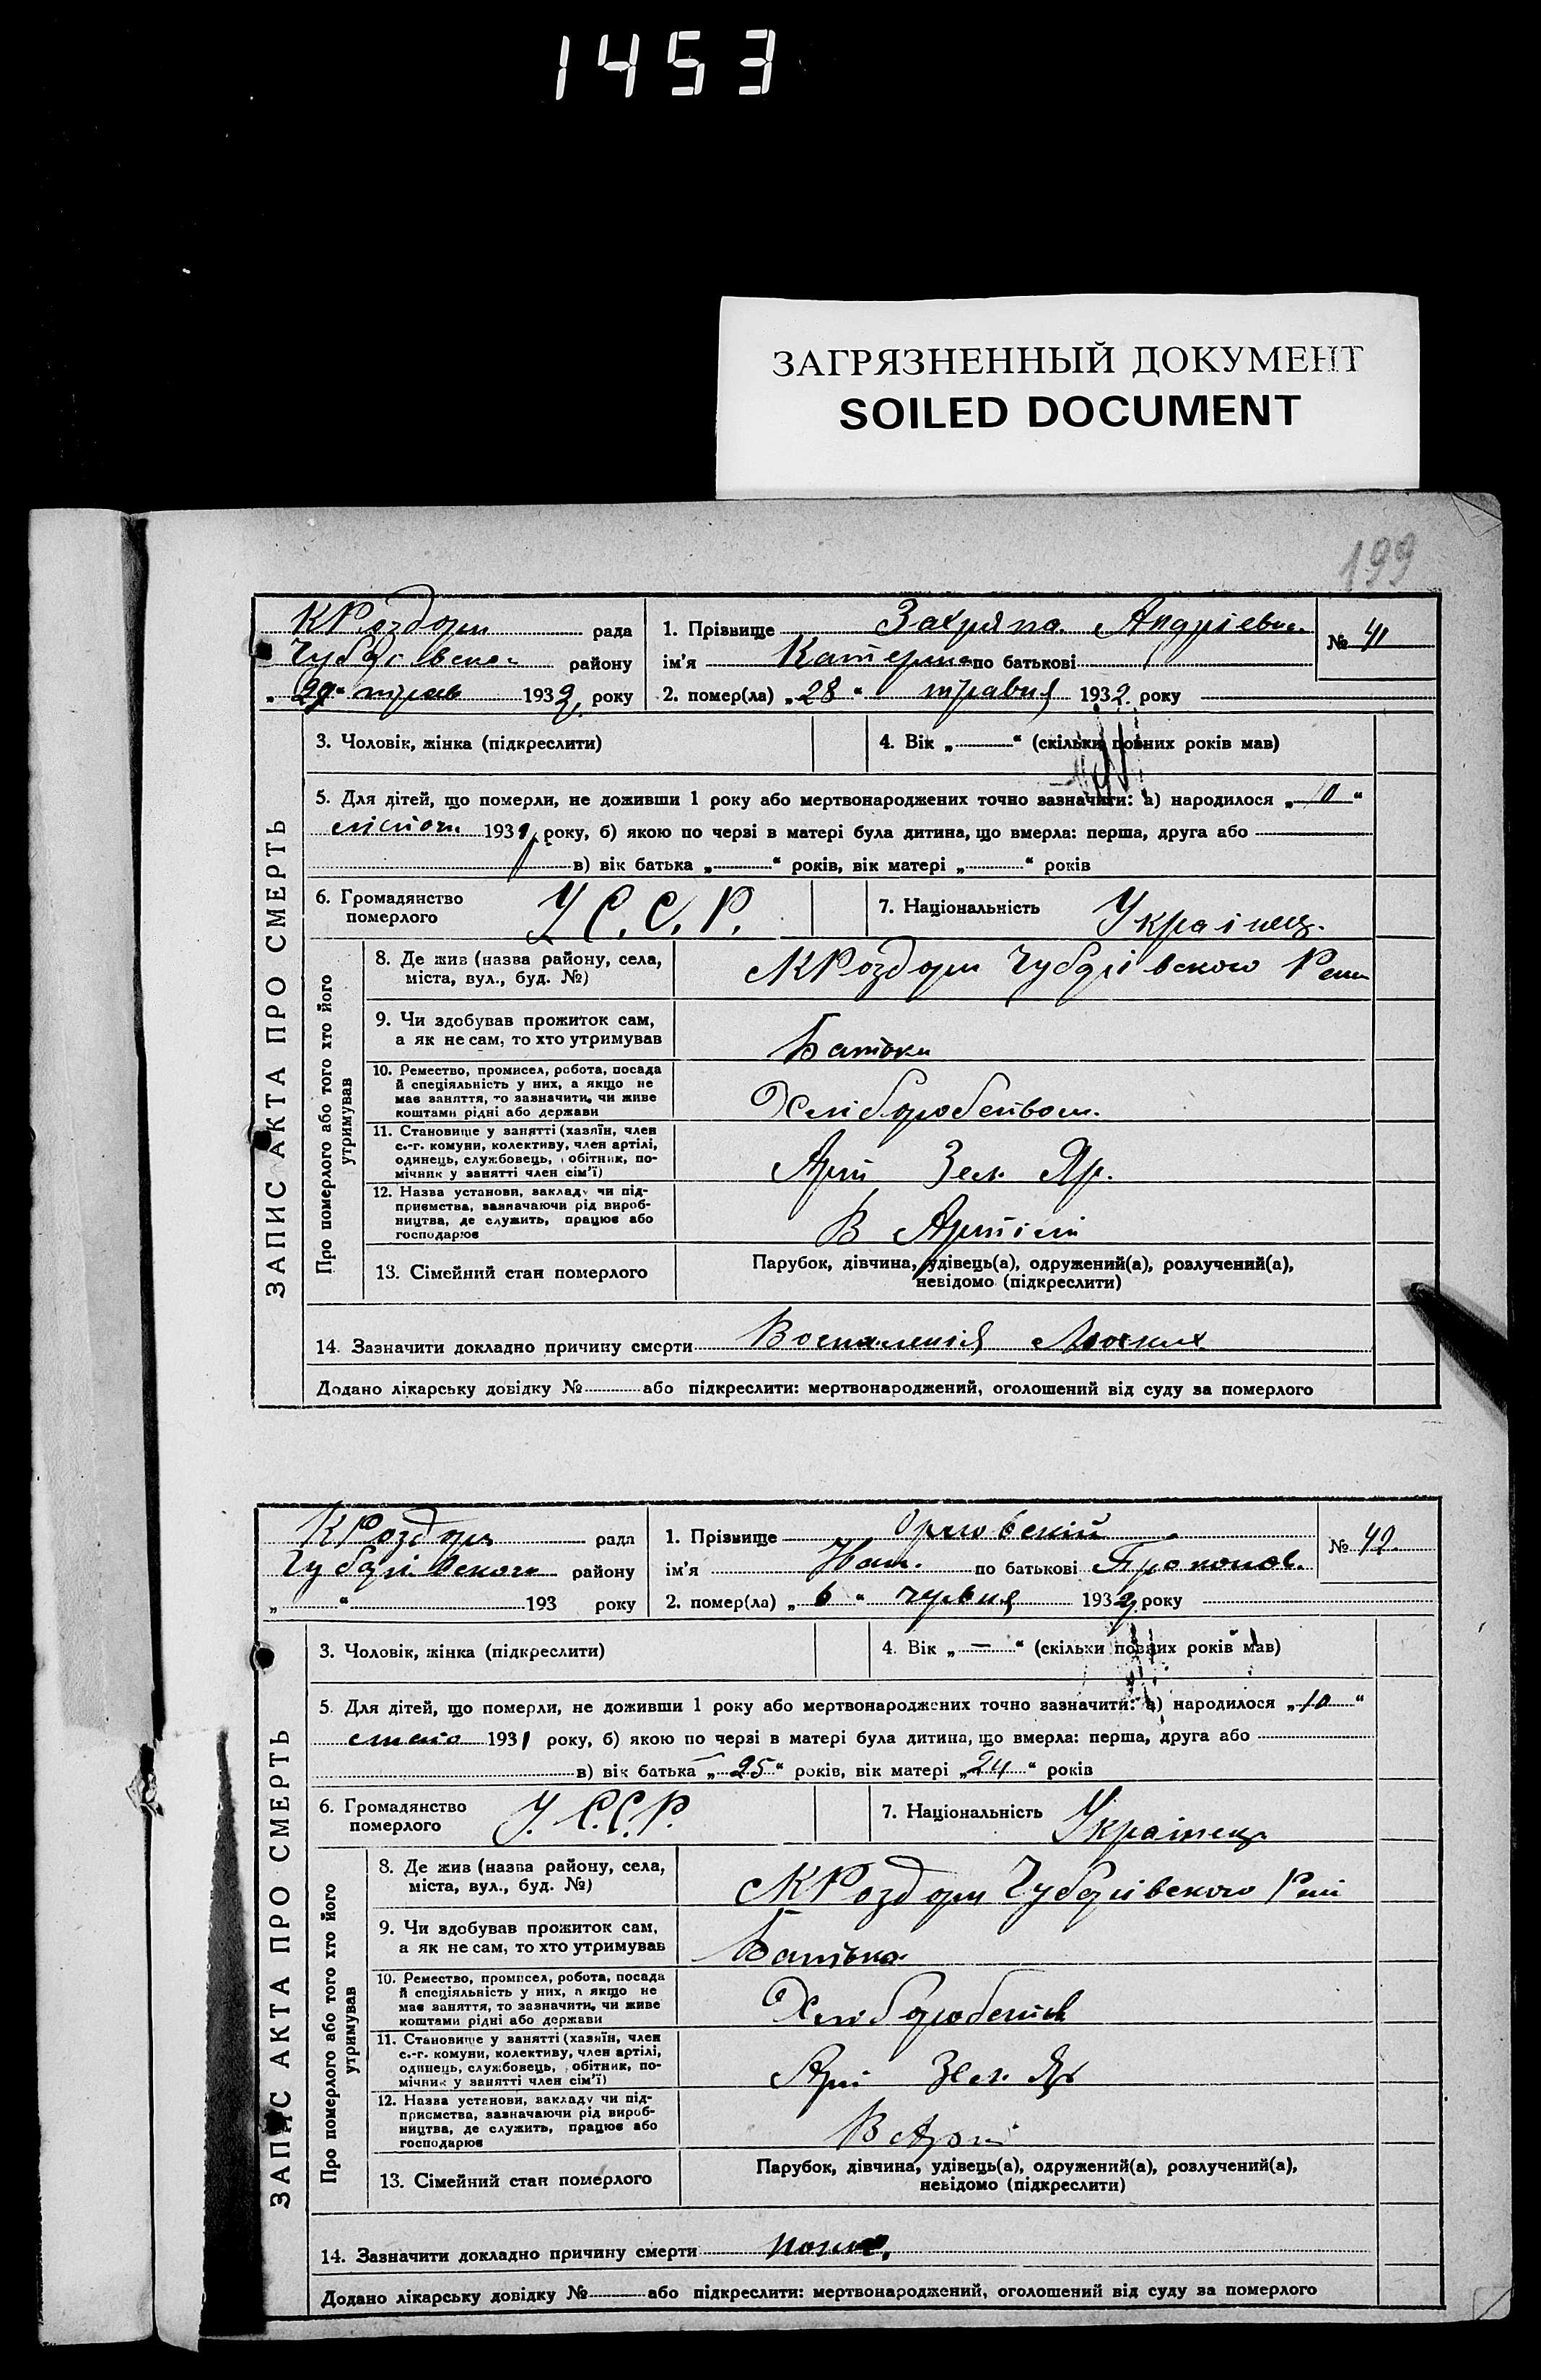 1453
ЗАГРЯЗНЕННЫЙ ДОКУМЕНТ
SOILED DOCUMENT
199
КРоздори рада
района району
„29“ трав 1932 року
1. Прізвище Андріевна
ім'я Катерина по батькові
2. помер(ла) „28“ травня 1932 року
№ 41
ЗАПИС АКТА ПРО СМЕРТЬ
3. Чоловік, жінка (підкреслити)
4. Вік „ “ (скільки повних років мав)
5. Для дітей, що померли, не доживши 1 року або мертвонароджених точно зазначити: а) народилося „10“
1931 року, б) якою по черзі в матері була дитина, що вмерла: перша, друга або
в) вік батька „ “ років, вік матері „ “ років
6. Громадянство
померлого
У.С.С.Р.
7. Національність Українец.
Про померлого або того хто його
утримував
8. Де жив (назва району, села,
міста, вул., буд. №)
КРоздори Чубарівского
9. Чи здобував прожиток сам,
а як не сам, то хто утримував
Батьки
10. Ремество, промисел, робота, посада
й спеціяльність у них, а якщо не
має заняття, то зазначити, чи живе
коштами рідні або держави
Хліборобством.
11. Становище у занятті (хазяїн, член
с.-г. комуни, колективу, член артілі,
одинець, службовець, обітник, по-
мічник у занятті член сім'ї)
Арт Зел. Яр.
12. Назва установи, закладу чи під-
приємства, зазначаючи рід вироб-
ництва, де служить, працює або
господарює
В Артілі
13. Сімейний стан померлого
Парубок, дівчина, удівець(а), одружений(а), розлучений(а),
невідомо (підкреслити)
14. Зазначити докладно причину смерти Воспаления
Додано лікарську довідку № або підкреслити: мертвонароджений, оголошений від суду за померлого
КРоздори рада
Чубарівского району
„ “ 193 року
1. Прізвище
ім'я Иван. по батькові
2. помер(ла) „6“ червня 1932 року
№ 42.
ЗАПИС АКТА ПРО СМЕРТЬ
3. Чоловік, жінка (підкреслити)
4. Вік „—“ (скільки повних років мав)
5. Для дітей, що померли, не доживши 1 року або мертвонароджених точно зазначити: а) народилося „10“
1931 року, б) якою по черзі в матері була дитина, що вмерла: перша, друга або
в) вік батька „25“ років, вік матері „24“ років
6. Громадянство
померлого
У.С.С.Р.
7. Національність Українец
Про померлого або того хто його
утримував
8. Де жив (назва району, села,
міста, вул., буд. №)
КРоздори Чубарівского
9. Чи здобував прожиток сам,
а як не сам, то хто утримував
Батько
10. Ремество, промисел, робота, посада
й спеціяльність у них, а якщо не
має заняття, то зазначити, чи живе
коштами рідні або держави
Хліборобств
11. Становище у занятті (хазяїн, член
с.-г. комуни, колективу, член артілі,
одинець, службовець, обітник, по-
мічник у занятті член сім'ї)
Арт Зел. Яр
12. Назва установи, закладу чи під-
приємства, зазначаючи рід вироб-
ництва, де служить, працює або
господарює
13. Сімейний стан померлого
Парубок, дівчина, удівець(а), одружений(а), розлучений(а),
невідомо (підкреслити)
14. Зазначити докладно причину смерти
Додано лікарську довідку № або підкреслити: мертвонароджений, оголошений від суду за померлого